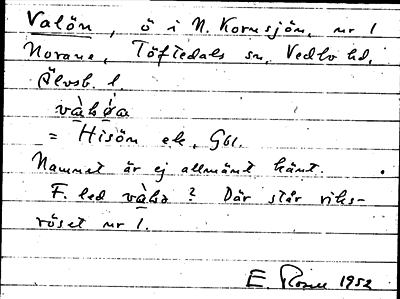 Valön, ö i N. Kornsjön, nr 1
Norane, Töftedals sn, Vedbo hd,
Älvsb. l.
= Hisön ek, Gbl.
Namnet är ej allmänt känt.
F. led ? Där står riks-
röset nr 1.
E. 1952